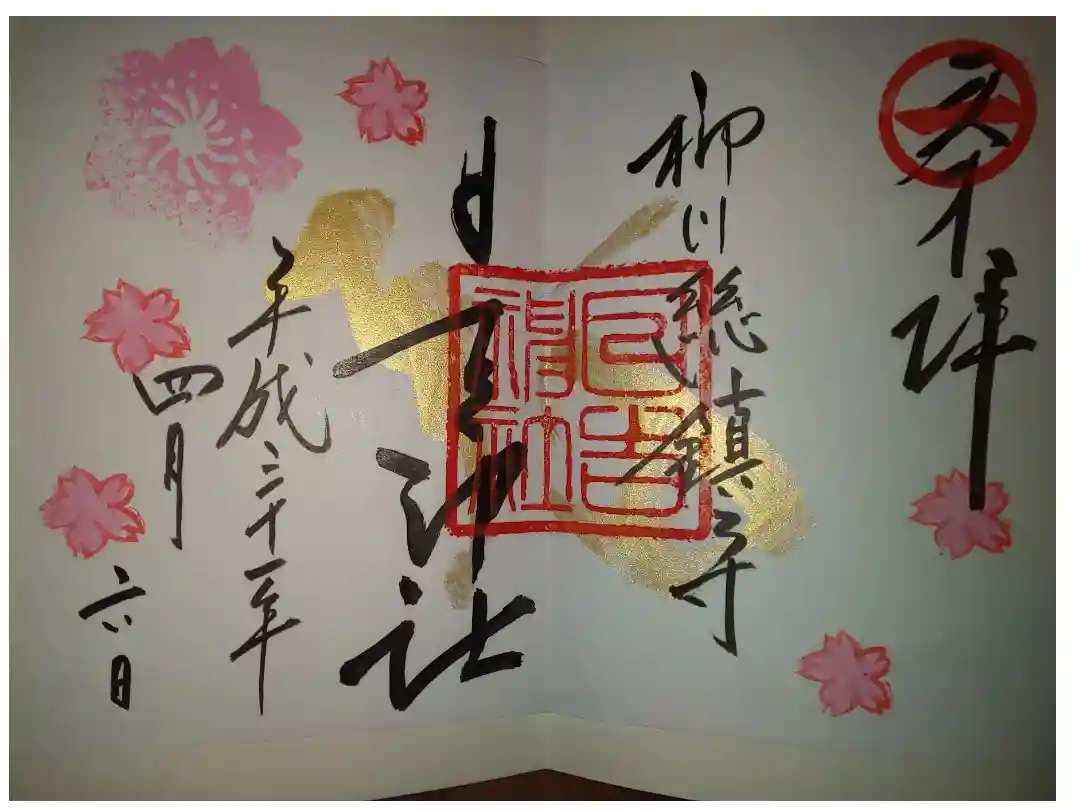 奉拝
柳川総鎮守
日吉神社
日吉
神社
平成三十一年
四月
六日